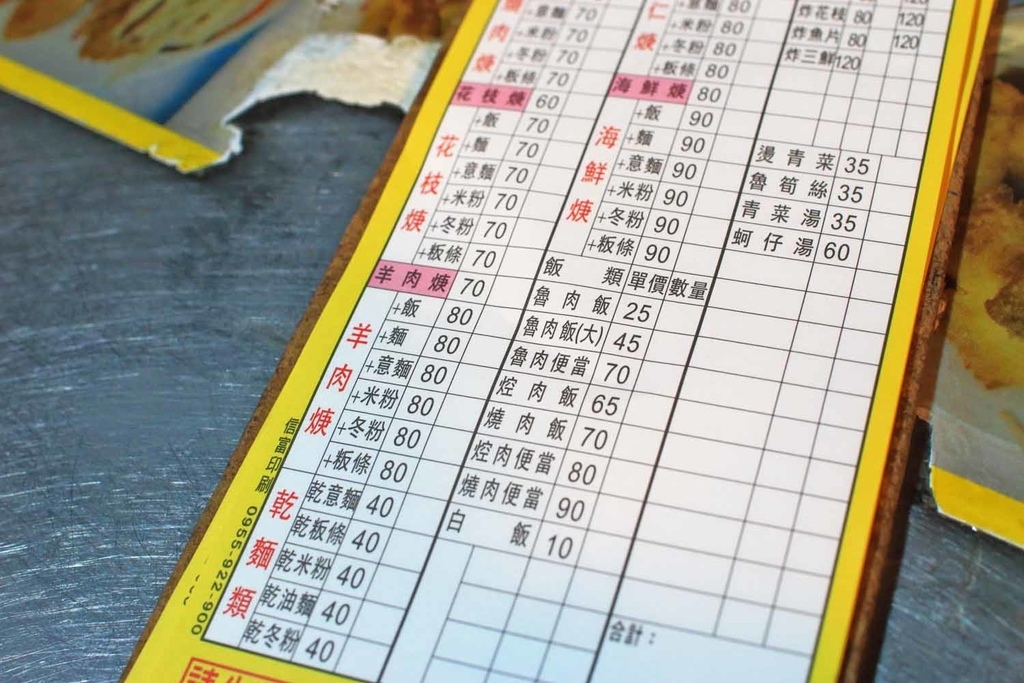 肉焿
+意麵 70
+米粉 70
+冬粉 70
+粄條 70
花枝焿 60
花枝焿
+飯 70
+麵 70
+意麵 70
+米粉 70
+冬粉 70
+粄條 70
羊肉焿 70
羊肉焿
+飯 80
+麵 80
+意麵 80
+米粉 80
+冬粉 80
+粄條 80
乾麵類
乾意麵 40
乾粄條 40
乾米粉 40
乾油麵 40
乾冬粉 40
仁焿
+意麵 80
+米粉 80
+冬粉 80
+粄條 80
海鮮焿 80
海鮮焿
+飯 90
+麵 90
+意麵 90
+米粉 90
+冬粉 90
+粄條 90
飯類 單價 數量
魯肉飯 25
魯肉飯(大) 45
魯肉便當 70
焢肉飯 65
燒肉飯 70
焢肉便當 80
燒肉便當 90
白飯 10
炸花枝 80 120
炸魚片 80 120
炸三鮮 120
燙青菜 35
魯筍絲 35
青菜湯 35
蚵仔湯 60
合計：
信富印刷 0955-922-900